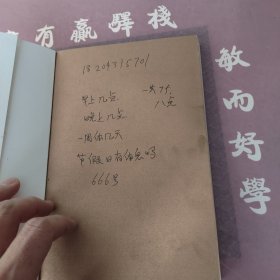 有赢驿栈
敏而好學
18204315701
早上几点
一共7个
八点
晚上几点
一周休几天
节假日有休息吗
666号